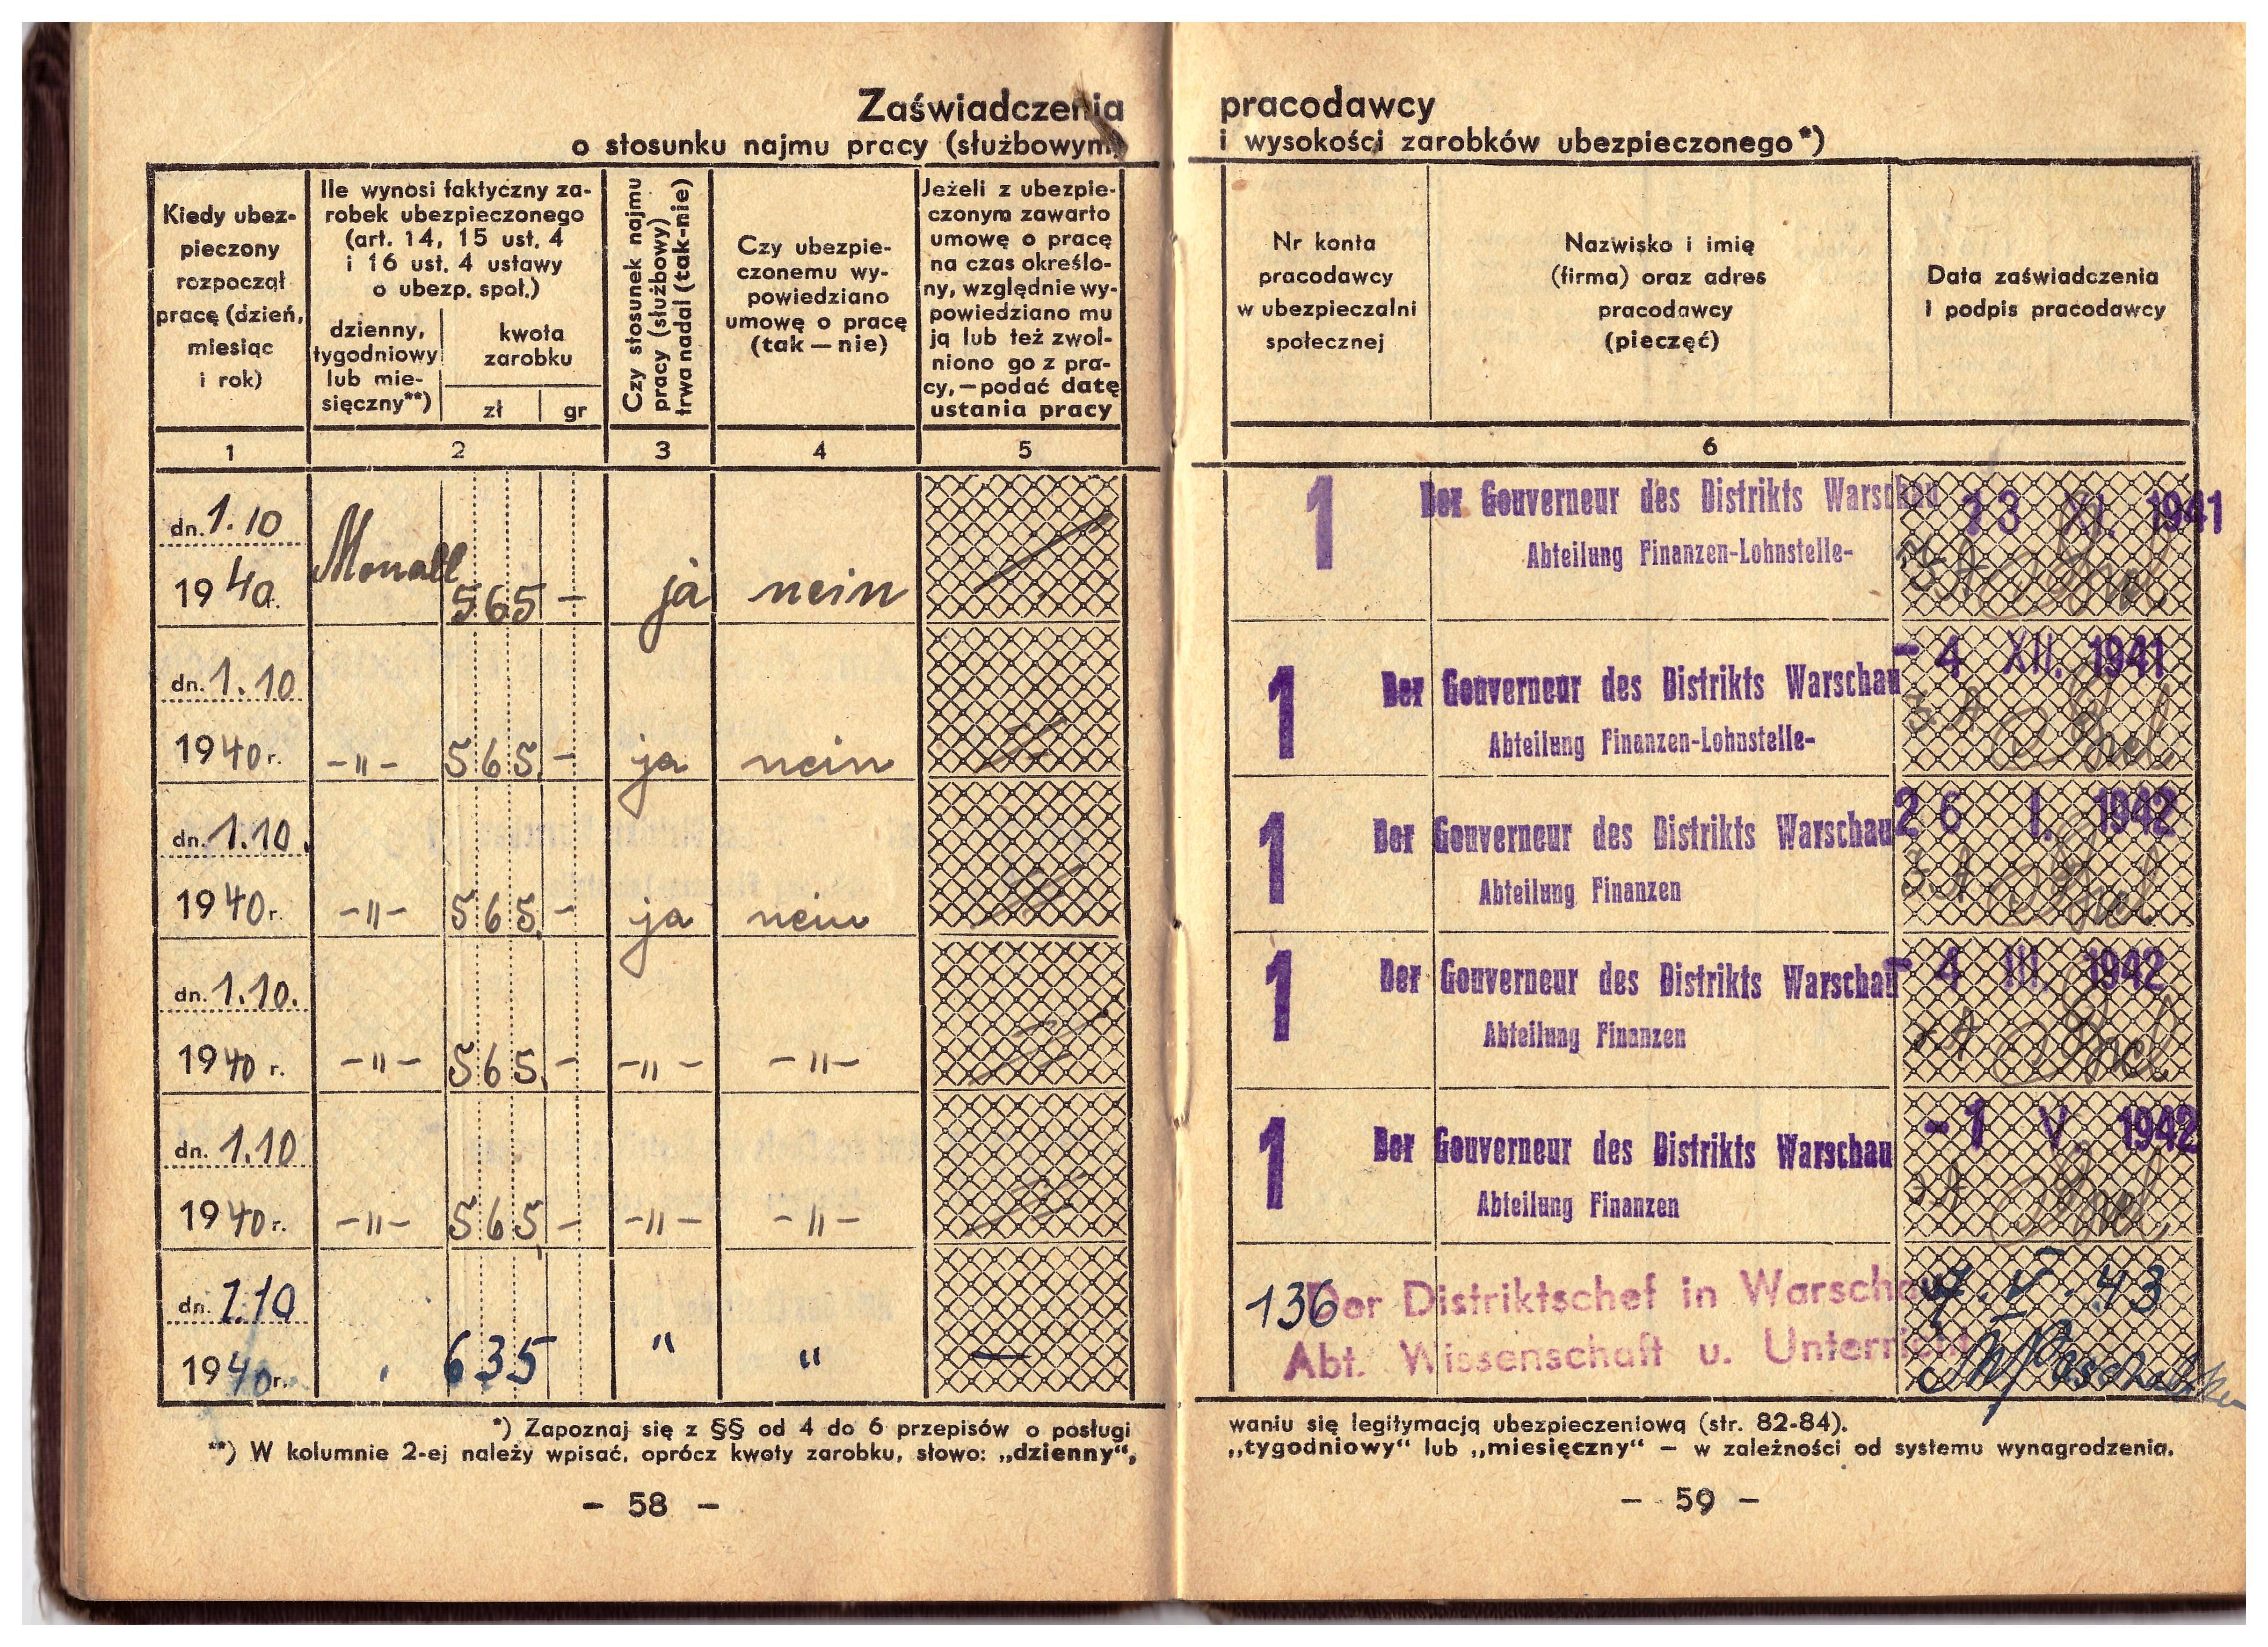 Zaświadczenia
o stosunku najmu pracy (służbowym)
Kiedy ubez-
pieczony
rozpoczął
pracę (dzień,
miesiąc
i rok)
Ile wynosi faktyczny za-
robek ubezpieczonego
(art. 14, 15 ust. 4
i 16 ust. 4 ustawy
o ubezp. społ.)
dzienny,
tygodniowy
lub mie-
sięczny**)
kwota
zarobku
zł gr
Czy stosunek najmu
pracy (służbowy)
trwa nadal (tak-nie)
Czy ubezpie-
czonemu wy-
powiedziano
umowę o pracę
(tak — nie)
Jeżeli z ubezpie-
czonym zawarto
umowę o pracę
na czas określo-
ny, względnie wy-
powiedziano mu
ją lub też zwol-
niono go z pra-
cy, — podać datę
ustania pracy
1 2 3 4 5
dn. 1.10
1940r. Monatl 565 — ja nein
dn. 1.10
1940r. —"— 565 — ja nein
dn. 1.10.
1940r. —"— 565 — ja nein
dn. 1.10.
1940r. —"— 565 — —"— —"—
dn. 1.10
1940r. —"— 565 — —"— —"—
dn. 1.10
1940r. 635 " " —
*) Zapoznaj się z §§ od 4 do 6 przepisów o posługi
**) W kolumnie 2-ej należy wpisać, oprócz kwoty zarobku, słowo: „dzienny“,
— 58 —
pracodawcy
i wysokości zarobków ubezpieczonego*)
Nr konta
pracodawcy
w ubezpieczalni
społecznej
Nazwisko i imię
(firma) oraz adres
pracodawcy
(pieczęć)
Data zaświadczenia
i podpis pracodawcy
6
1 Der Gouverneur des Distrikts Warschau 13 XI. 1941
Abteilung Finanzen-Lohnstelle-
1 Der Gouverneur des Distrikts Warschau - 4 XII. 1941
Abteilung Finanzen-Lohnstelle-
1 Der Gouverneur des Distrikts Warschau 26 I. 1942
Abteilung Finanzen
1 Der Gouverneur des Distrikts Warschau - 4 III. 1942
Abteilung Finanzen
1 Der Gouverneur des Distrikts Warschau - 1 V. 1942
Abteilung Finanzen
136 Der Distriktschef in Warschau 7.V.43
Abt. Wissenschaft u. Unterricht
waniu się legitymacją ubezpieczeniową (str. 82-84).
„tygodniowy“ lub „miesięczny“ — w zależności od systemu wynagrodzenia.
— 59 —